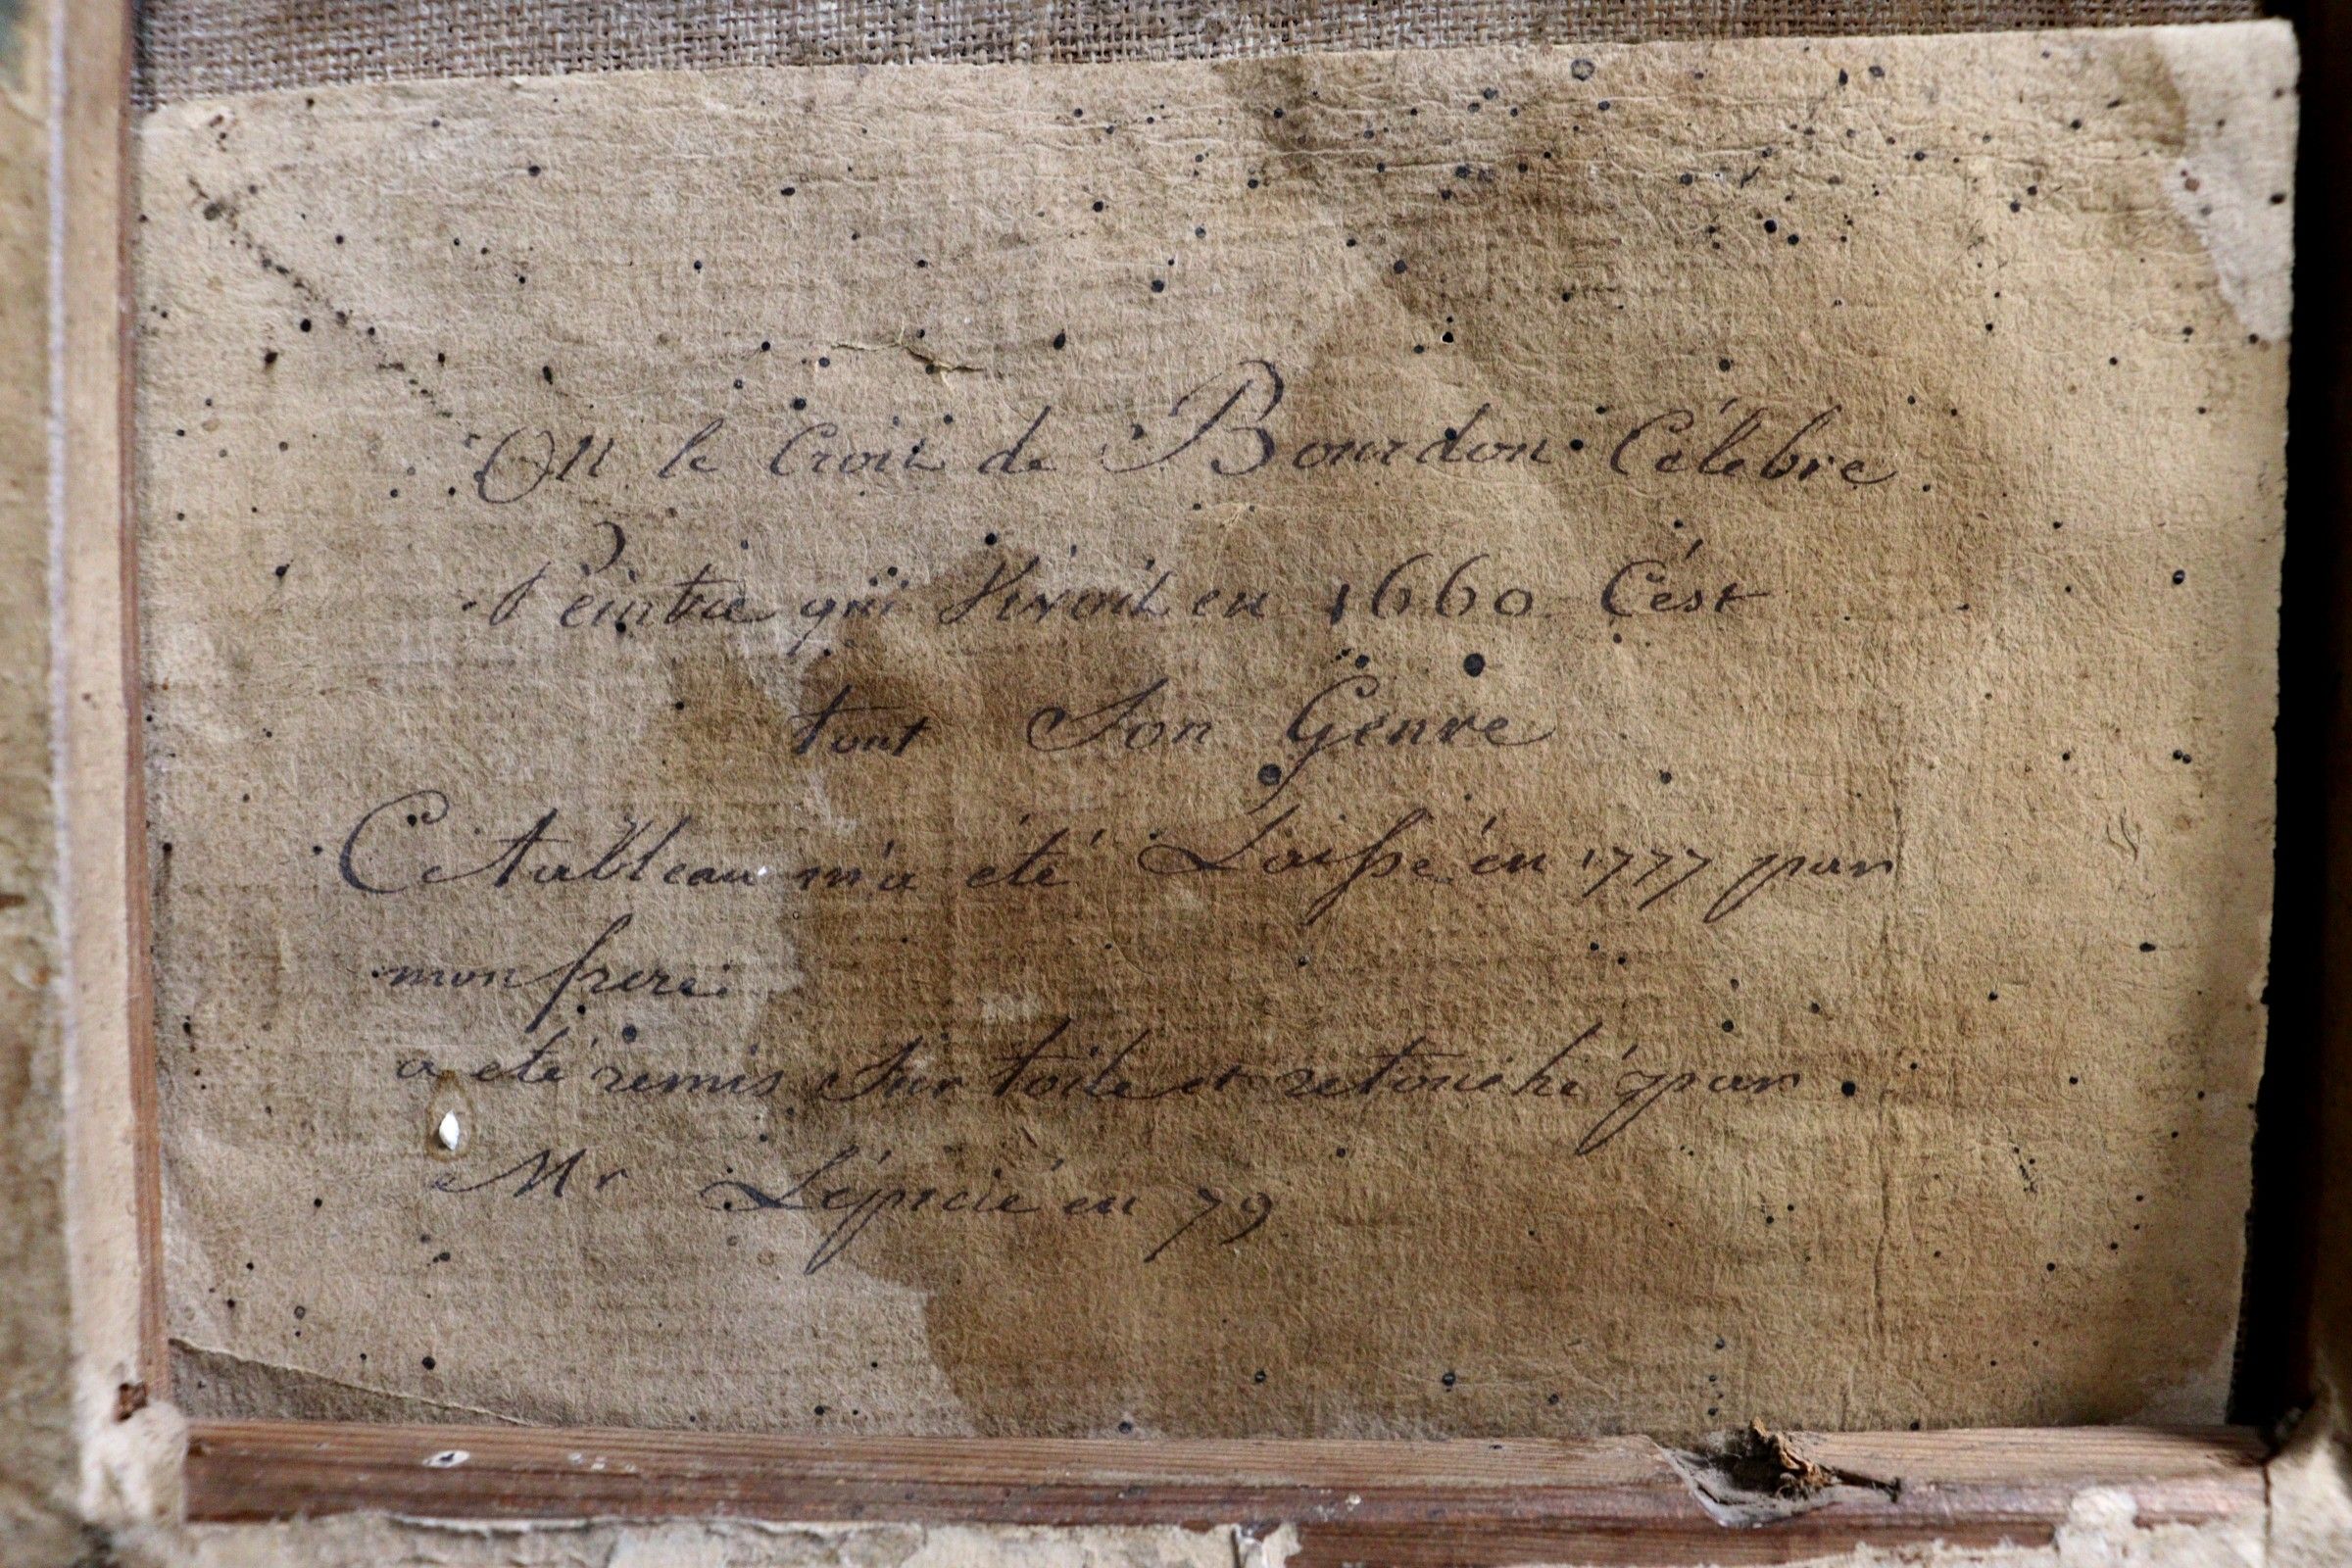 On le Croit de Bourdon Célebre
Peintre qui Vivoit en 1660 C'ést
tout Son Genre
Ce tableau m'a été Laissé en 1777 par
mon frere
a été remis Sur toile et retouché par
Mr Lépicié en 79